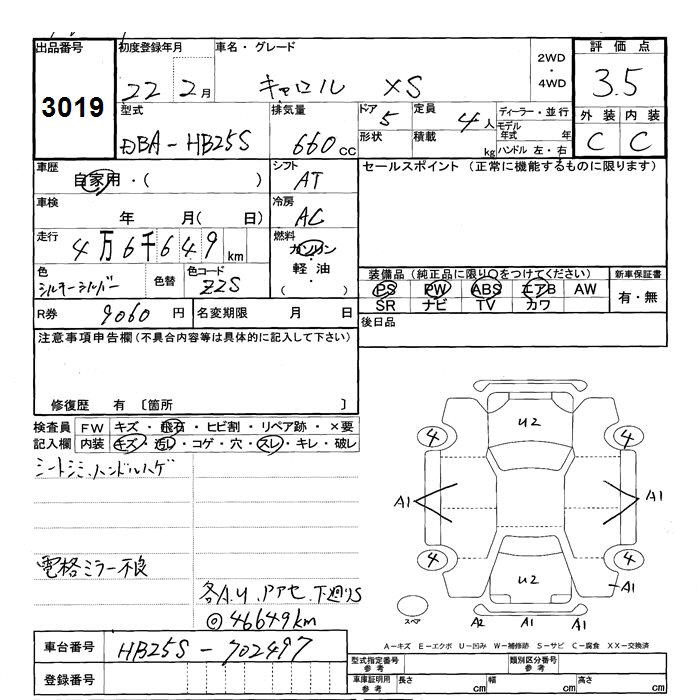 出品番号
3019
初度登録年月
22 2月
車名・グレード
キャロル XS
2WD
・
4WD
評価点
3.5
外装 内装
C C
型式
DBA-HB25S
排気量
660 CC
ドア 5
形状
定員 4人
積載 kg
ディーラー・並行
モデル年式 年
ハンドル 左・右
車歴
自家用・( )
シフト
AT
セールスポイント (正常に機能するものに限ります)
車検
年 月( 日)
冷房
AC
走行
4万6千649km
燃料
ガソリン
・
軽油
・
( )
色
シルキーシルバー
色替
色コード
ZZS
装備品(純正品に限り○をつけてください)
PS PW ABS エアB AW
SR ナビ TV カワ
新車保証書
有・無
R券 9060 円
名変期限 月 日
後日品
注意事項申告欄(不具合内容等は具体的に記入して下さい)
修復歴 有 〔箇所 〕
検査員 FW キズ・飛石・ヒビ割・リペア跡・×要
記入欄 内装 キズ・汚レ・コゲ・穴・スレ・キレ・破レ
シートシミ、ハンドルハゲ
電格ミラー不良
各A.U.アアセ.下廻りS
◎46649km
U2
4 4
A1 A1
4 4
U2
A1
スペア
A2 A1 A1
A−キズ E−エクボ U−凹み W−補修跡 S−サビ C−腐食 XX−交換済
車台番号 HB25S-702497
登録番号
型式指定番号
参考
類別区分番号
参考
車庫証明用
参考
長さ cm 幅 cm 高さ cm